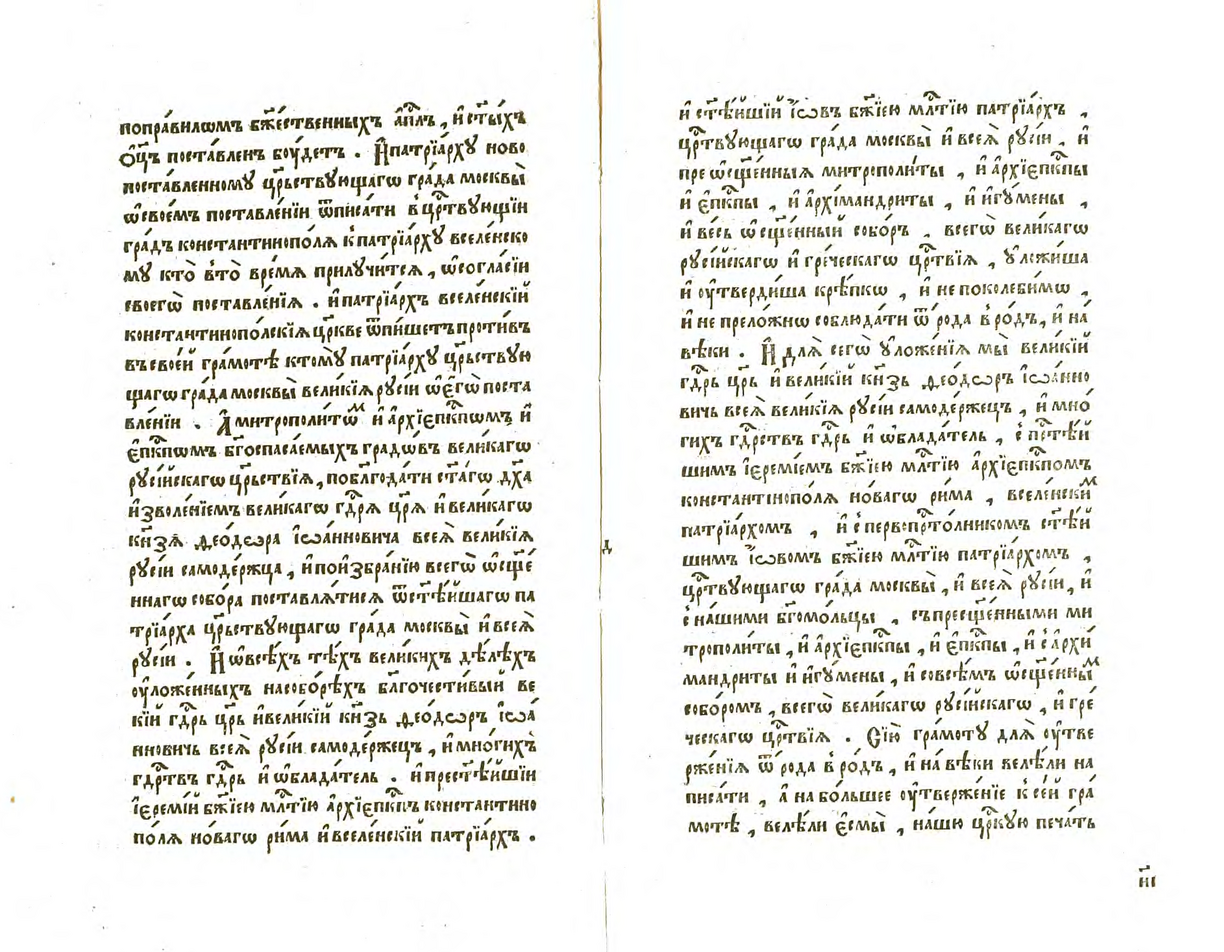 попра́вилѡмъ бж҃е́ственныхъ а҆пⷭ҇лъ , и҆ ст҃ы́хъ
ѻ҆ц҃ъ поста́вленъ бꙋ́детъ . И҆патрїа́рхꙋ ново
поста́вленномꙋ цр҃ьствꙋ́ющагѡ гра́да москвы̀
ѡ҆свое́мъ поставле́нїи ѿписа́ти вцрⷭ҇твꙋ́ющїи
гра́дъ константинопо́лѧ кпатрїа́рхꙋ вселе́нско
мꙋ кто̀ вто̀ вре́мѧ прилꙋчи́тсѧ , ѡ҆согла́сїи
своегѡ̀ поставле́нїѧ . и҆патрїа́рхъ вселе́нскїй
константинопо́лскїѧ цр҃кве ѿпи́шетъ проти́въ
въ свое́й гра́мотѣ ктомꙋ̀ патрїа́рхꙋ цр҃ьствꙋ́ю
щагѡ гра́да москвы̀ вели́кїѧ рꙋсі́и ѡ҆є҆гѡ̀ поста
вле́нїи . А҆ митрополи́тѡⷨ и҆ а҆рхїєпⷭ҇кпѡмъ и҆
є҆пⷭ҇кпѡмъ бг҃оспаса́емыхъ градѡ́въ вели́кагѡ
рꙋсі́йскагѡ цр҃ьствїѧ, поблгⷣода́ти ст҃а́гѡ дх҃а
и҆зволе́нїемъ вели́кагѡ гдⷭ҇рѧ̀ цр҃ѧ̀ и҆ вели́кагѡ
кнѧ҃зѧ ѳео́дѡра і҆ѡа́нновича всеѧ̀ вели́кїѧ
рꙋсі́и самоде́ржца , и҆ поизбра́нїю всегѡ̀ ѡ҆сщ҃е́
ннагѡ собо́ра поставлѧ́тисѧ ѿст҃ѣ́йшагѡ па
трїа́рха цр҃ьствꙋ́ющагѡ гра́да москвы̀ и҆ всеѧ̀
рꙋсі́и . И҆ ѡ҆всѣ́хъ тѣ́хъ вели́кихъ дѣ́лѣхъ
ᲂу҆ложе́нныхъ насобо́рѣхъ благочести́вый ве
кїй гдⷭ҇рь цр҃ь и҆вели́кїй кнѧ҃зь ѳео́дѡръ і҆ѡа́
нновичь всеѧ̀ рꙋсі́и самоде́ржецъ , и҆ мно́гихъ
гдⷭ҇ртвъ гдⷭ҇рь и҆ ѡ҆блада́тель . и҆ прест҃ѣ́йшїи
і҆еремі́й бж҃їею млⷭ҇тїю а҆рхїєпⷭ҇кпъ константино
по́лѧ но́вагѡ ри́ма и҆ вселе́нскїй патрїа́рхъ .
и҆ ст҃ѣ́йшїй і҆́ѡвъ бж҃їею млⷭ҇тїю патрїа́рхъ ,
црⷭ҇твꙋ́ющагѡ гра́да москвы̀ и҆ всеѧ̀ рꙋсі́и , и҆
пре ѡ҆сщ҃е́нныѧ митрополи́ты , и҆ а҆рхїєпⷭ҇кпы
и҆ є҆пⷭ҇кпы , и҆ а҆рхїмандри́ты , и҆ и҆гꙋ́мены ,
и҆ весь ѡ҆сщ҃е́нный собо́ръ , всегѡ̀ вели́кагѡ
рꙋсі́йскагѡ и҆ гре́ческагѡ црⷭ҇твїѧ , ᲂу҆ложи́ша
и҆ ᲂу҆тверди́ша крѣ́пкѡ , и҆ не поколеби́мѡ ,
и҆ не прело́жнѡ соблюда́ти ѿ ро́да в ро́дъ, и҆ на́
вѣки . И҆ длѧ̀ сегѡ̀ ᲂу҆ложе́нїѧ мы̀ вели́кїй
гдⷭ҇рь цр҃ь и҆ вели́кїй кнѧ҃зь ѳео́дѡръ і҆ѡа́нно
вичь всеѧ̀ вели́кїѧ рꙋсі́и самоде́ржецъ , и҆ мно́
гихъ гдⷭ҇рствъ гдⷭ҇рь и҆ ѡ҆блада́тель , с пст҃ѣ́й
шимъ і҆еремі́емъ бж҃їею млⷭ҇тїю а҆рхїєпⷭ҇кпомъ
константінопо́лѧ но́вагѡ ри́ма , вселе́нскиⷨ
патрїа́рхомъ , и҆ с первопрⷭ҇то́лникомъ ст҃ѣ́й
шимъ і҆́ѡвомъ бж҃їею млⷭ҇тїю патрїа́рхомъ ,
црⷭ҇твꙋ́ющагѡ гра́да москвы̀ , и҆ всеѧ̀ рꙋсі́и, и҆
с на́шими бг҃омо́льцы , съ пресщ҃е́нными ми
трополи́ты , и҆ а҆рхїєпⷭ҇кпы , и҆ є҆пⷭ҇кпы , и҆ с а҆рхи
мандри́ты и҆ и҆гꙋ́мены , и҆ совсѣ́мъ ѡ҆сщ҃е́нныⷨ
собо́ромъ , всегѡ̀ вели́кагѡ рꙋсі́йскагѡ , и҆ гре́
ческагѡ црⷭ҇твїѧ . Сїю̀ гра́мотꙋ длѧ̀ ᲂу҆тве
рже́нїѧ ѿ ро́да в ро́дъ , и҆ на́ вѣки велѣ́ли на
писа́ти , а҆ на бо́льшее ᲂу҆тверже́нїе к се́й гра́
мотѣ , велѣ́ли є҆смы̀ , на́шю црⷭ҇кꙋю печа́ть
д
н҃і